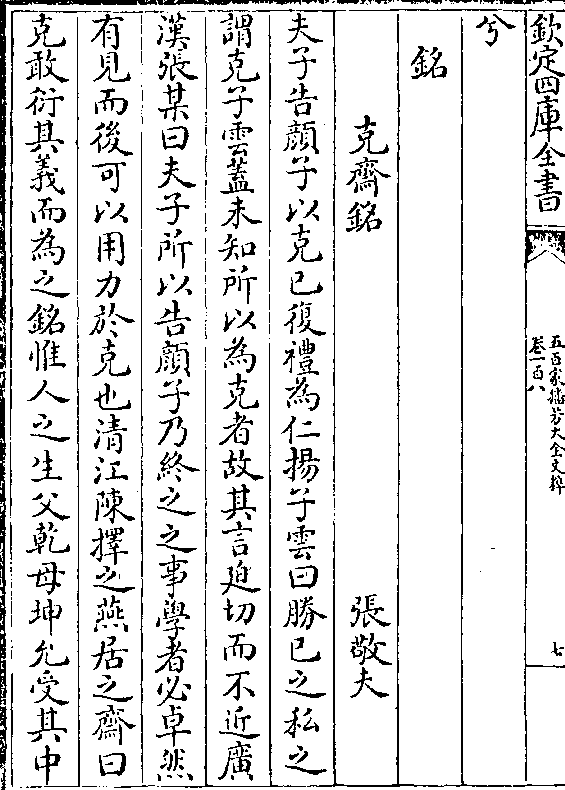 欽定四庫全書
五百家播芳大全文粹
卷一百八
七
兮
銘
克齋銘
張敬夫
夫子告顔子以克已復禮為仁揚子雲曰勝已之私之
謂克子雲蓋未知所以為克者故其言廹切而不近廣
漢張某曰夫子所以告顔子乃終之之事學者必卓然
有見而後可以用力於克也清江陳擇之燕居之齋曰
克敢衍其義而為之銘惟人之生父乾母坤允受其中